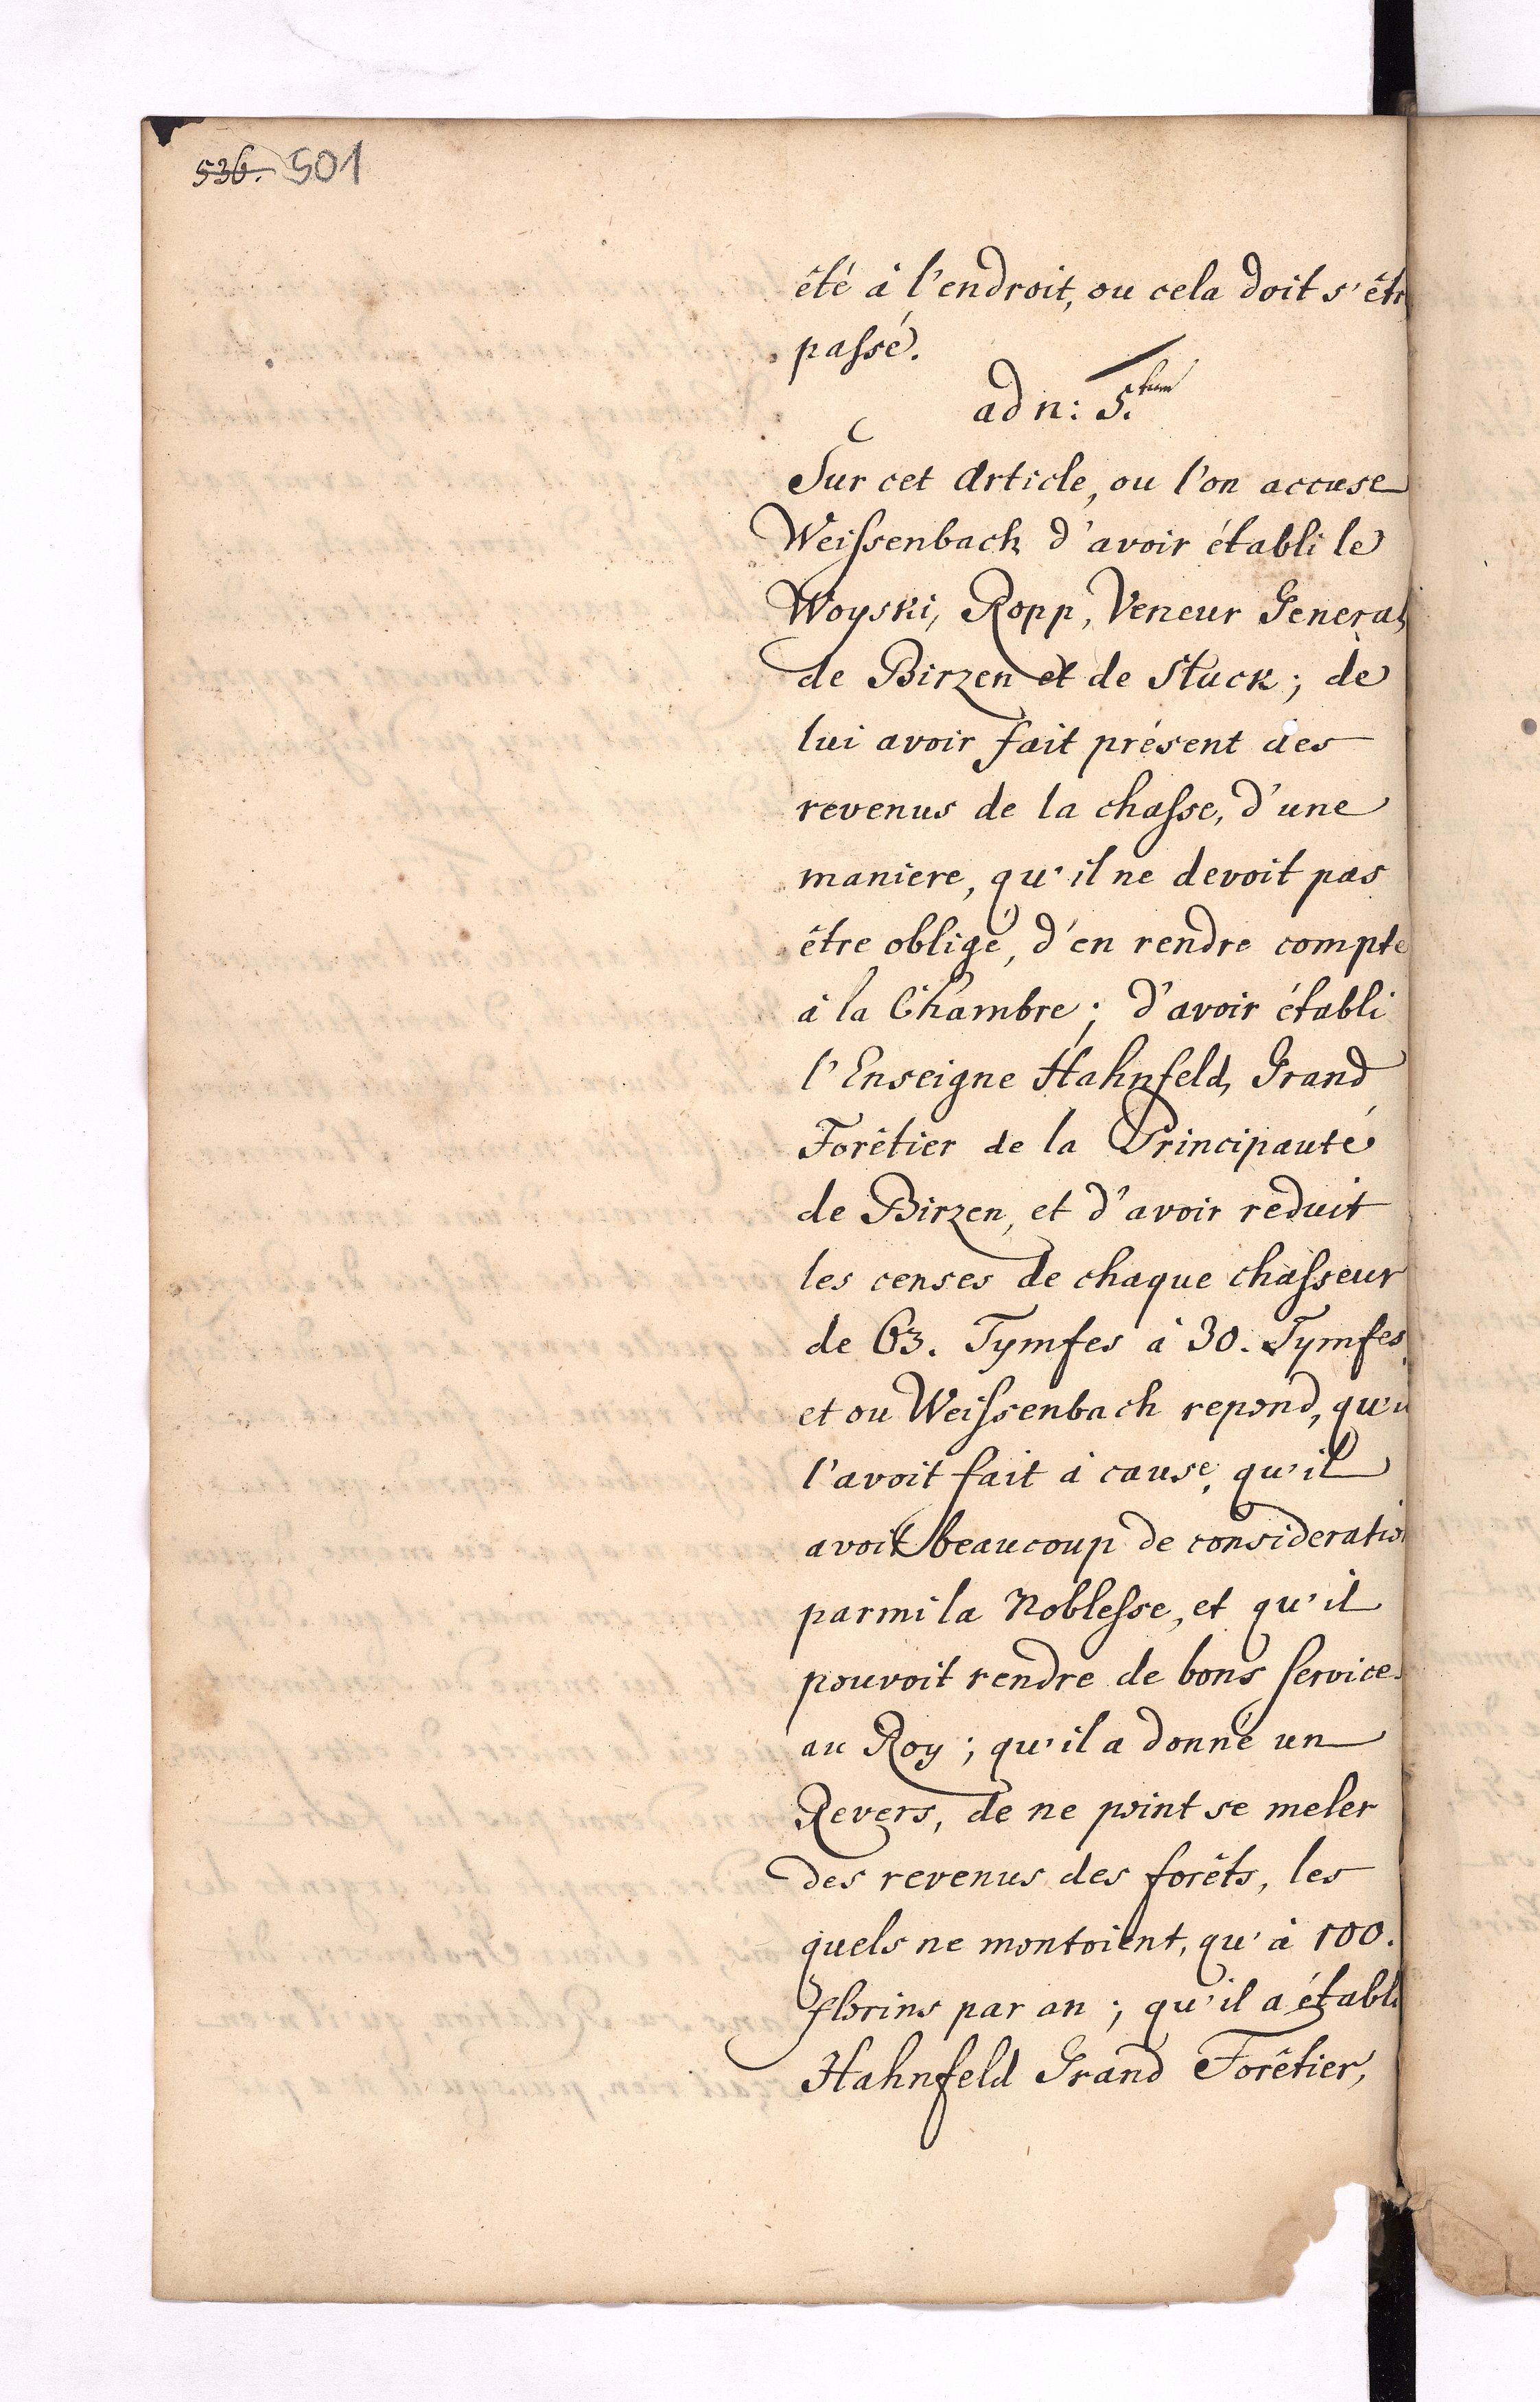 536. 501
été à l'endroit, ou cela doit s'êtr
passé.
ad n: 5.tum
Sur cet Article, ou l'on accuse
Weissenbach d'avoir établi le
Woyski, Ropp, Veneur General
de Birzen et de Sluck; de
lui avoir fait présent des
revenus de la chasse, d'une
maniere, qu'il ne devoit pas
être obligé, d'en rendre compte
à la Chambre; d'avoir établi
l'Enseigne Hahnfeld, Grand
Forêtier de la Principauté
de Birzen, et d'avoir reduit
les censes de chaque chasseur
de 63. Tymfes à 30. Tymfes,
et ou Weissenbach repond, qu'i
l'avoit fait à cause, qu'il
avoit beaucoup de consideratio
parmi la Noblesse, et qu'il
pouvoit rendre de bons services
au Roy; qu'il a donné un
Revers, de ne point se meler
des revenus des forêts, les
quels ne montoient, qu'à 100.
florins par an; qu'il a établi
Hahnfeld Grand Forêtier,